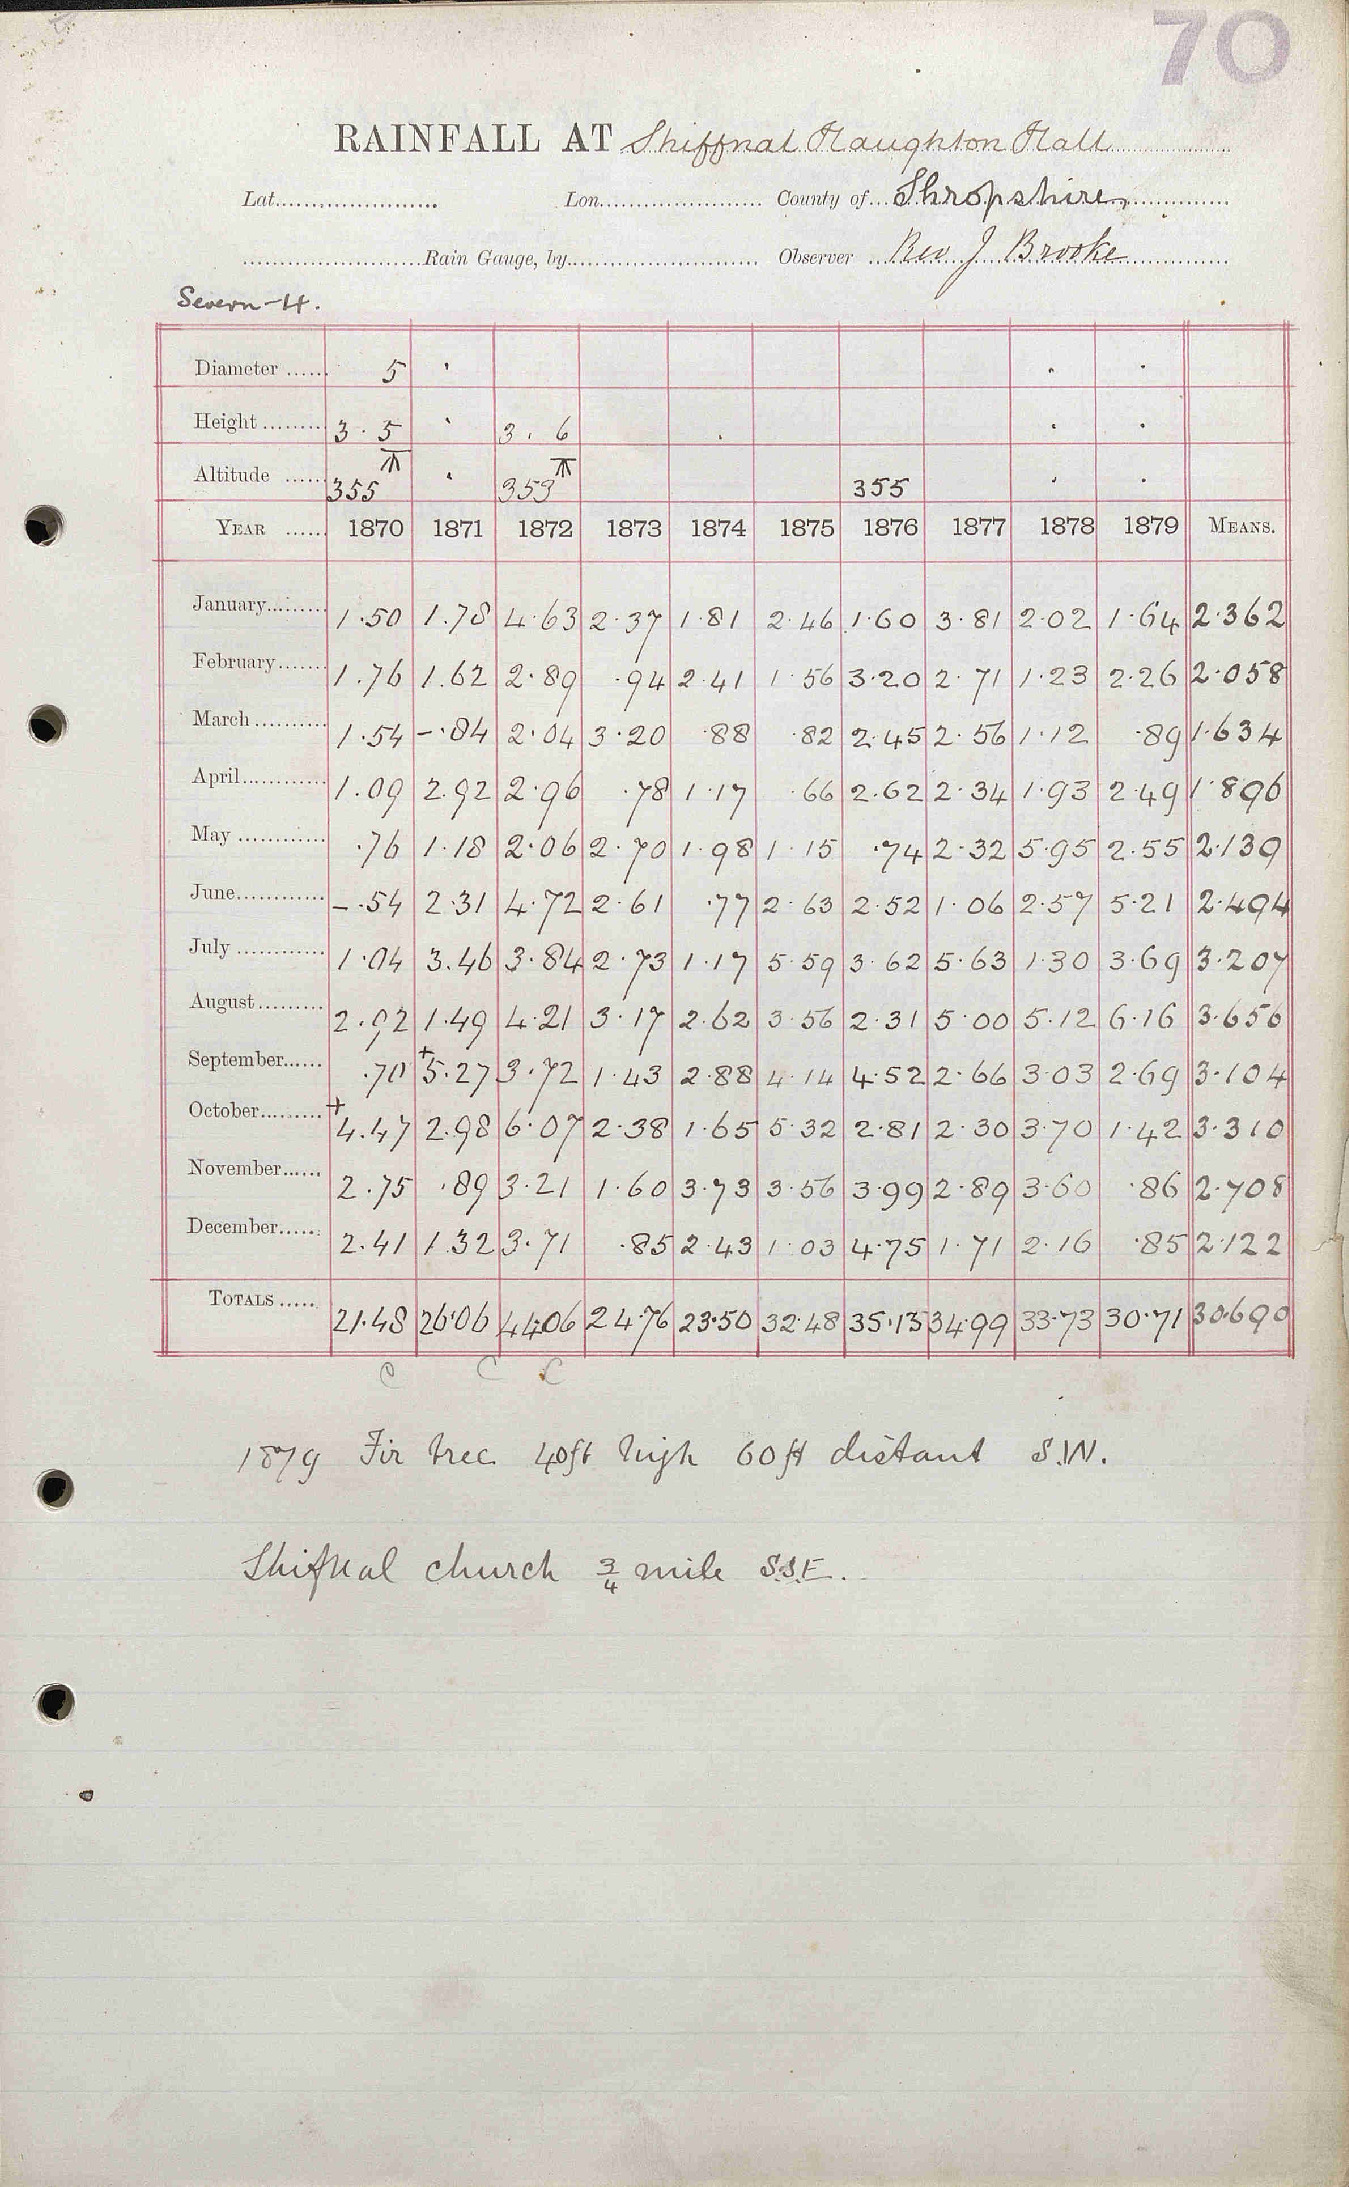 70
RAINFALL AT Shiffnal Haughton Hall
Lat. Lon. County of Shropshire
Rain Gauge, by Observer Rev J Brooke
Severn-H.
Diameter 5
Height 3.5 3.6
Altitude 355 353 355
YEAR 1870 1871 1872 1873 1874 1875 1876 1877 1878 1879 MEANS.
January 1.50 1.78 4.63 2.37 1.81 2.46 1.60 3.81 2.02 1.64 2.362
February 1.76 1.62 2.89 .94 2.41 1.56 3.20 2.71 1.23 2.26 2.058
March 1.54 -.84 2.04 3.20 .88 .82 2.45 2.56 1.12 .89 1.634
April 1.09 2.92 2.96 .78 1.17 .66 2.62 2.34 1.93 2.49 1.896
May .76 1.18 2.06 2.70 1.98 1.15 .74 2.32 5.95 2.55 2.139
June -.54 2.31 4.72 2.61 .77 2.63 2.52 1.06 2.57 5.21 2.494
July 1.04 3.46 3.84 2.73 1.17 5.59 3.62 5.63 1.30 3.69 3.207
August 2.92 1.49 4.21 3.17 2.62 3.56 2.31 5.00 5.12 6.16 3.656
September .70 +5.27 3.72 1.43 2.88 4.14 4.52 2.66 3.03 2.69 3.104
October +4.47 2.98 6.07 2.38 1.65 5.32 2.81 2.30 3.70 1.42 3.310
November 2.75 .89 3.21 1.60 3.73 3.56 3.99 2.89 3.60 .86 2.708
December 2.41 1.32 3.71 .85 2.43 1.03 4.75 1.71 2.16 .85 2.122
TOTALS 21.48 26.06 44.06 24.76 23.50 32.48 35.13 34.99 33.73 30.71 30.690
C C C
1879 Fir tree 40ft high 60ft distant S.W.
Shifnal church 3/4 mile S.S.E.